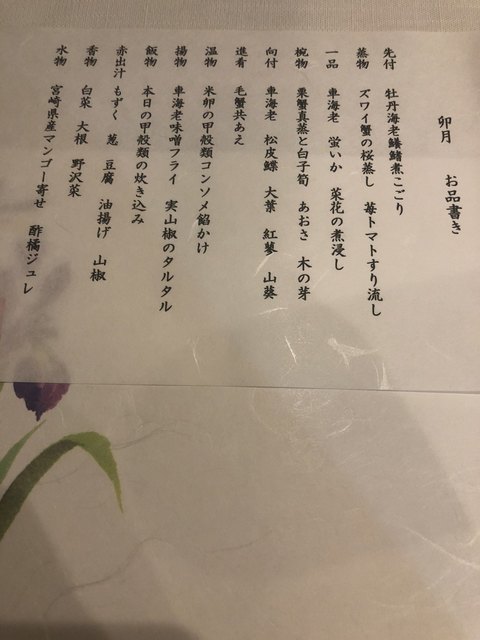 卯月　お品書き
先付　牡丹海老鱶鰭煮こごり
蒸物　ズワイ蟹の桜蒸し　苺トマトすり流し
一品　車海老　蛍いか　菜花の煮浸し
椀物　栗蟹真蒸と白子筍　あおさ　木の芽
向付　車海老　松皮鰈　大葉　紅蓼　山葵
進肴　毛蟹共あえ
温物　米卵の甲殻類コンソメ餡かけ
揚物　車海老味噌フライ　実山椒のタルタル
飯物　本日の甲殻類の炊き込み
赤出汁　もずく　葱　豆腐　油揚げ　山椒
香物　白菜　大根　野沢菜
水物　宮崎県産マンゴー寄せ　酢橘ジュレ